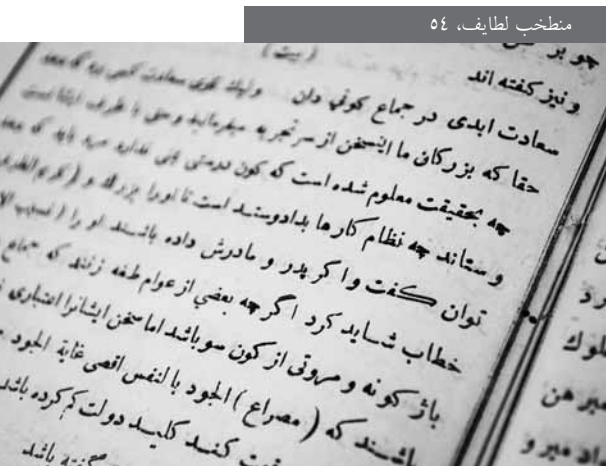 منطخب لطایف، ٥٤
چو بر
(بیت)
و نیز کفته اند
سعادت ابدی در جماع کونی دان ولیك کوی سعادت کسی برد که دهد
حقا که بزرکان ما اینسخن از سر تجربه میفرمایند و حق با طرف ایشا نست
چه بحقیقت معلوم شده است که کون درستی یمنی ندارد مرد باید که دهد
و ستاند چه نظام کار ها بدادوستد است تا اورا بزرك و (کریم الطرفین)
توان کفت و اکر پدر و مادرش داده باشند او را (نسیب الا
خطاب شاید کرد اگر چه بعضی از عوام طعنه زنند که جماع
باز کونه و مروتی از کون سو باشد اما سخن ایشانرا اعتباری
باشند که (مصراع) الجود بالنفس اقصی غایة الجود
کنند کلید دولت کم کرده باشد
کفته باشد
لوك
میر هن
داد میر و